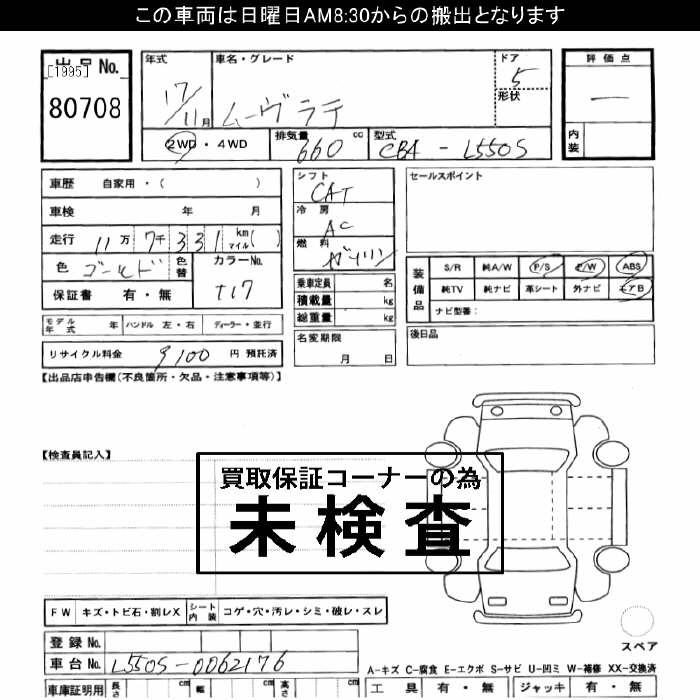 この車両は日曜日AM8:30からの搬出となります
出品No.
[1995]
80708
年式
17/11月
車名・グレード
ムーヴラテ
ドア
5
形状
2WD・4WD
排気量 660 cc
型式 CBA - L550S
評価点
—
内装
車歴 自家用・( )
車検 年 月
走行 11万 7千 331 km マイル( )
色 ゴールド
色替
カラーNo.
T17
保証書 有・無
シフト
CAT
冷房
AC
燃料
ガソリン
乗車定員 名
積載量 kg
総重量 kg
セールスポイント
装備品
S/R 純A/W P/S P/W ABS
純TV 純ナビ 革シート 外ナビ エアB
ナビ型番:
モデル年式 年 ハンドル 左・右 ディーラー・並行
リサイクル料金 9100 円 預託済
名変期限
月 日
後日品
【出品店申告欄(不良箇所・欠品・注意事項等)】
【検査員記入】
買取保証コーナーの為
未検査
FW キズ・トビ石・割レX シート内装 コゲ・穴・汚レ・シミ・破レ・スレ
スペア
登録No.
車台No. L550S-0062176
A-キズ C-腐食 E-エクボ S-サビ U-凹ミ W-補修 XX-交換済
車庫証明用 長さ cm 幅 cm 高さ cm
工具 有・無 ジャッキ 有・無